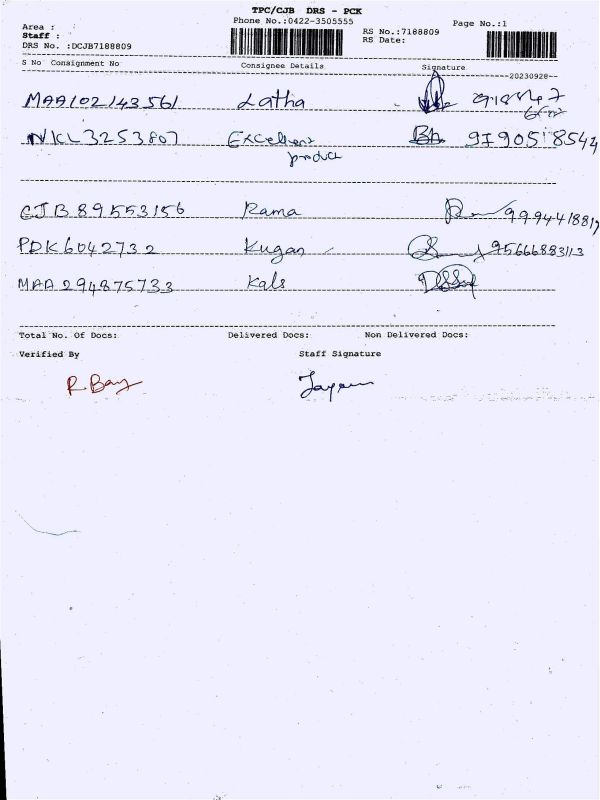 TPC/CJB DRS - PCK
Phone No.:0422-3505555
Page No.:1
Area :
Staff :
DRS No. :DCJB7188809
RS No.:7188809
RS Date:
S No Consignment No Consignee Details Signature
20230928
MAA102143561 Latha
NKL3253807 Excellent 9190518542
product
CJB89553156 Rama 9994418817
PDK6042732 Kugan 9566688313
MAA294875733 Kals
Total No. Of Docs: Delivered Docs: Non Delivered Docs:
Verified By Staff Signature
R. Bay